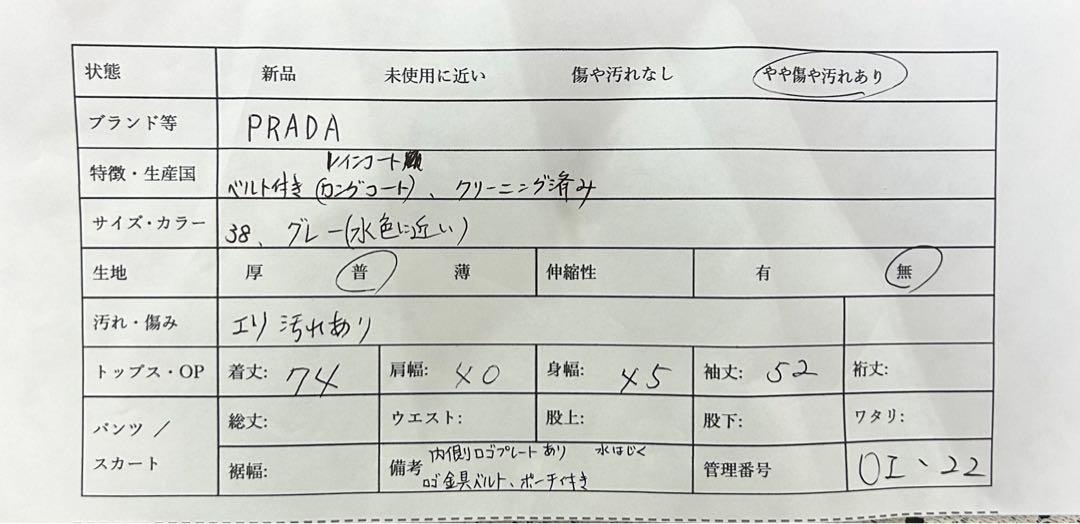 状態 新品 未使用に近い 傷や汚れなし やや傷や汚れあり
ブランド等 PRADA
レインコート
特徴・生産国 ベルト付き(ロングコート)、クリーニング済み
サイズ・カラー 38、グレー(水色に近い)
生地 厚 普 薄 伸縮性 有 無
汚れ・傷み エリ汚れあり
トップス・OP 着丈: 74 肩幅: 40 身幅: 45 袖丈: 52 裄丈:
パンツ / 総丈: ウエスト: 股上: 股下: ワタリ:
スカート 裾幅: 備考 内側ロゴプレートあり 水はじく 管理番号
ロゴ金具ベルト、ポーチ付き